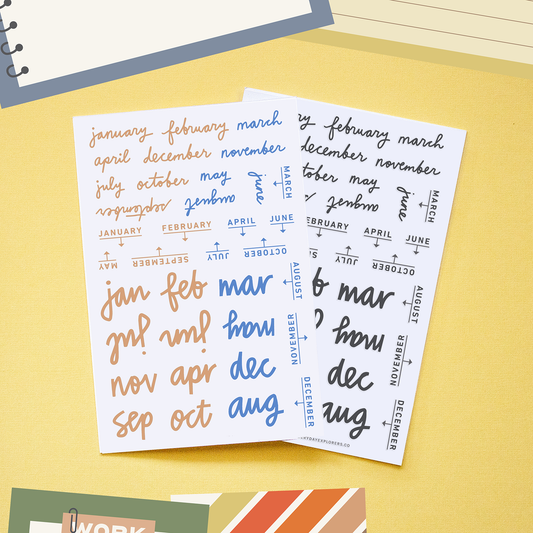 january february march
april december november
july october may
september august june
MARCH
JANUARY FEBRUARY APRIL JUNE
MAY SEPTEMBER JULY OCTOBER
jan feb mar
AUGUST
jul jun may
NOVEMBER
nov apr dec
sep oct aug
DECEMBER
february march
december november
october may
august june
MARCH
FEBRUARY APRIL JUNE
JULY OCTOBER
mar
AUGUST
may
NOVEMBER
dec
aug
DECEMBER
WORK